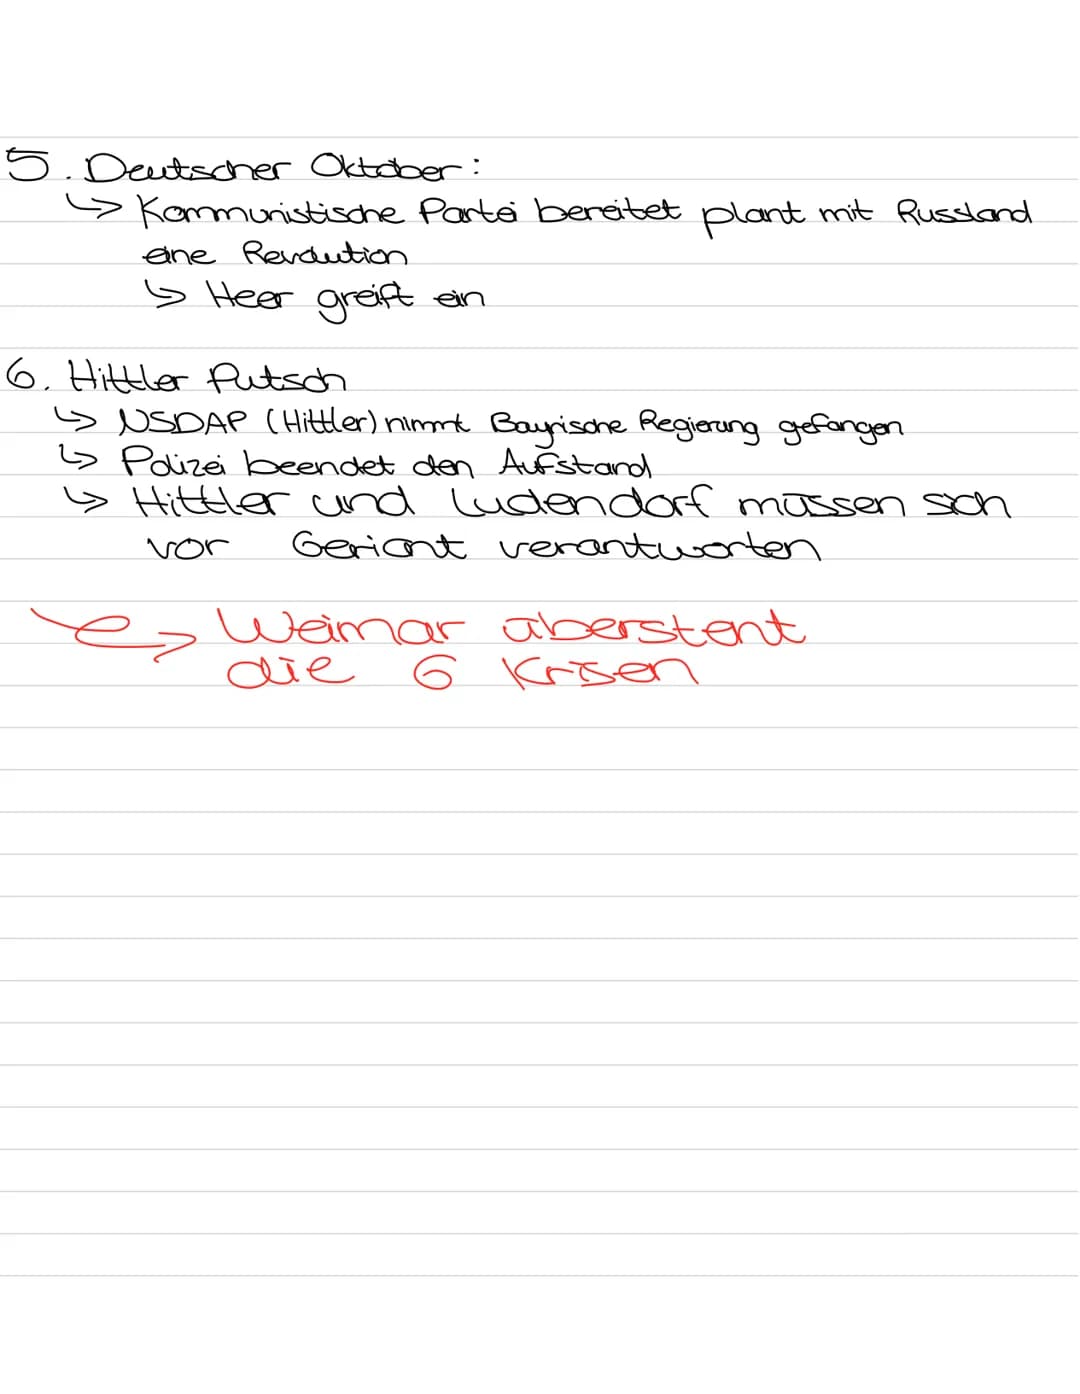 5. Deutscher Oktober:
↳ Kommunistische Partei bereitet plant mit Russland
eine Revolution
↳ Heer greift ein
6. Hittler Putsch
↳ NSDAP (Hittler) nimmt Bayrische Regierung gefangen
↳ Polizei beendet den Aufstand
↳ Hittler und Ludendorf müssen sich
vor Gericht verantworten
→ Weimar übersteht
die 6 Krisen